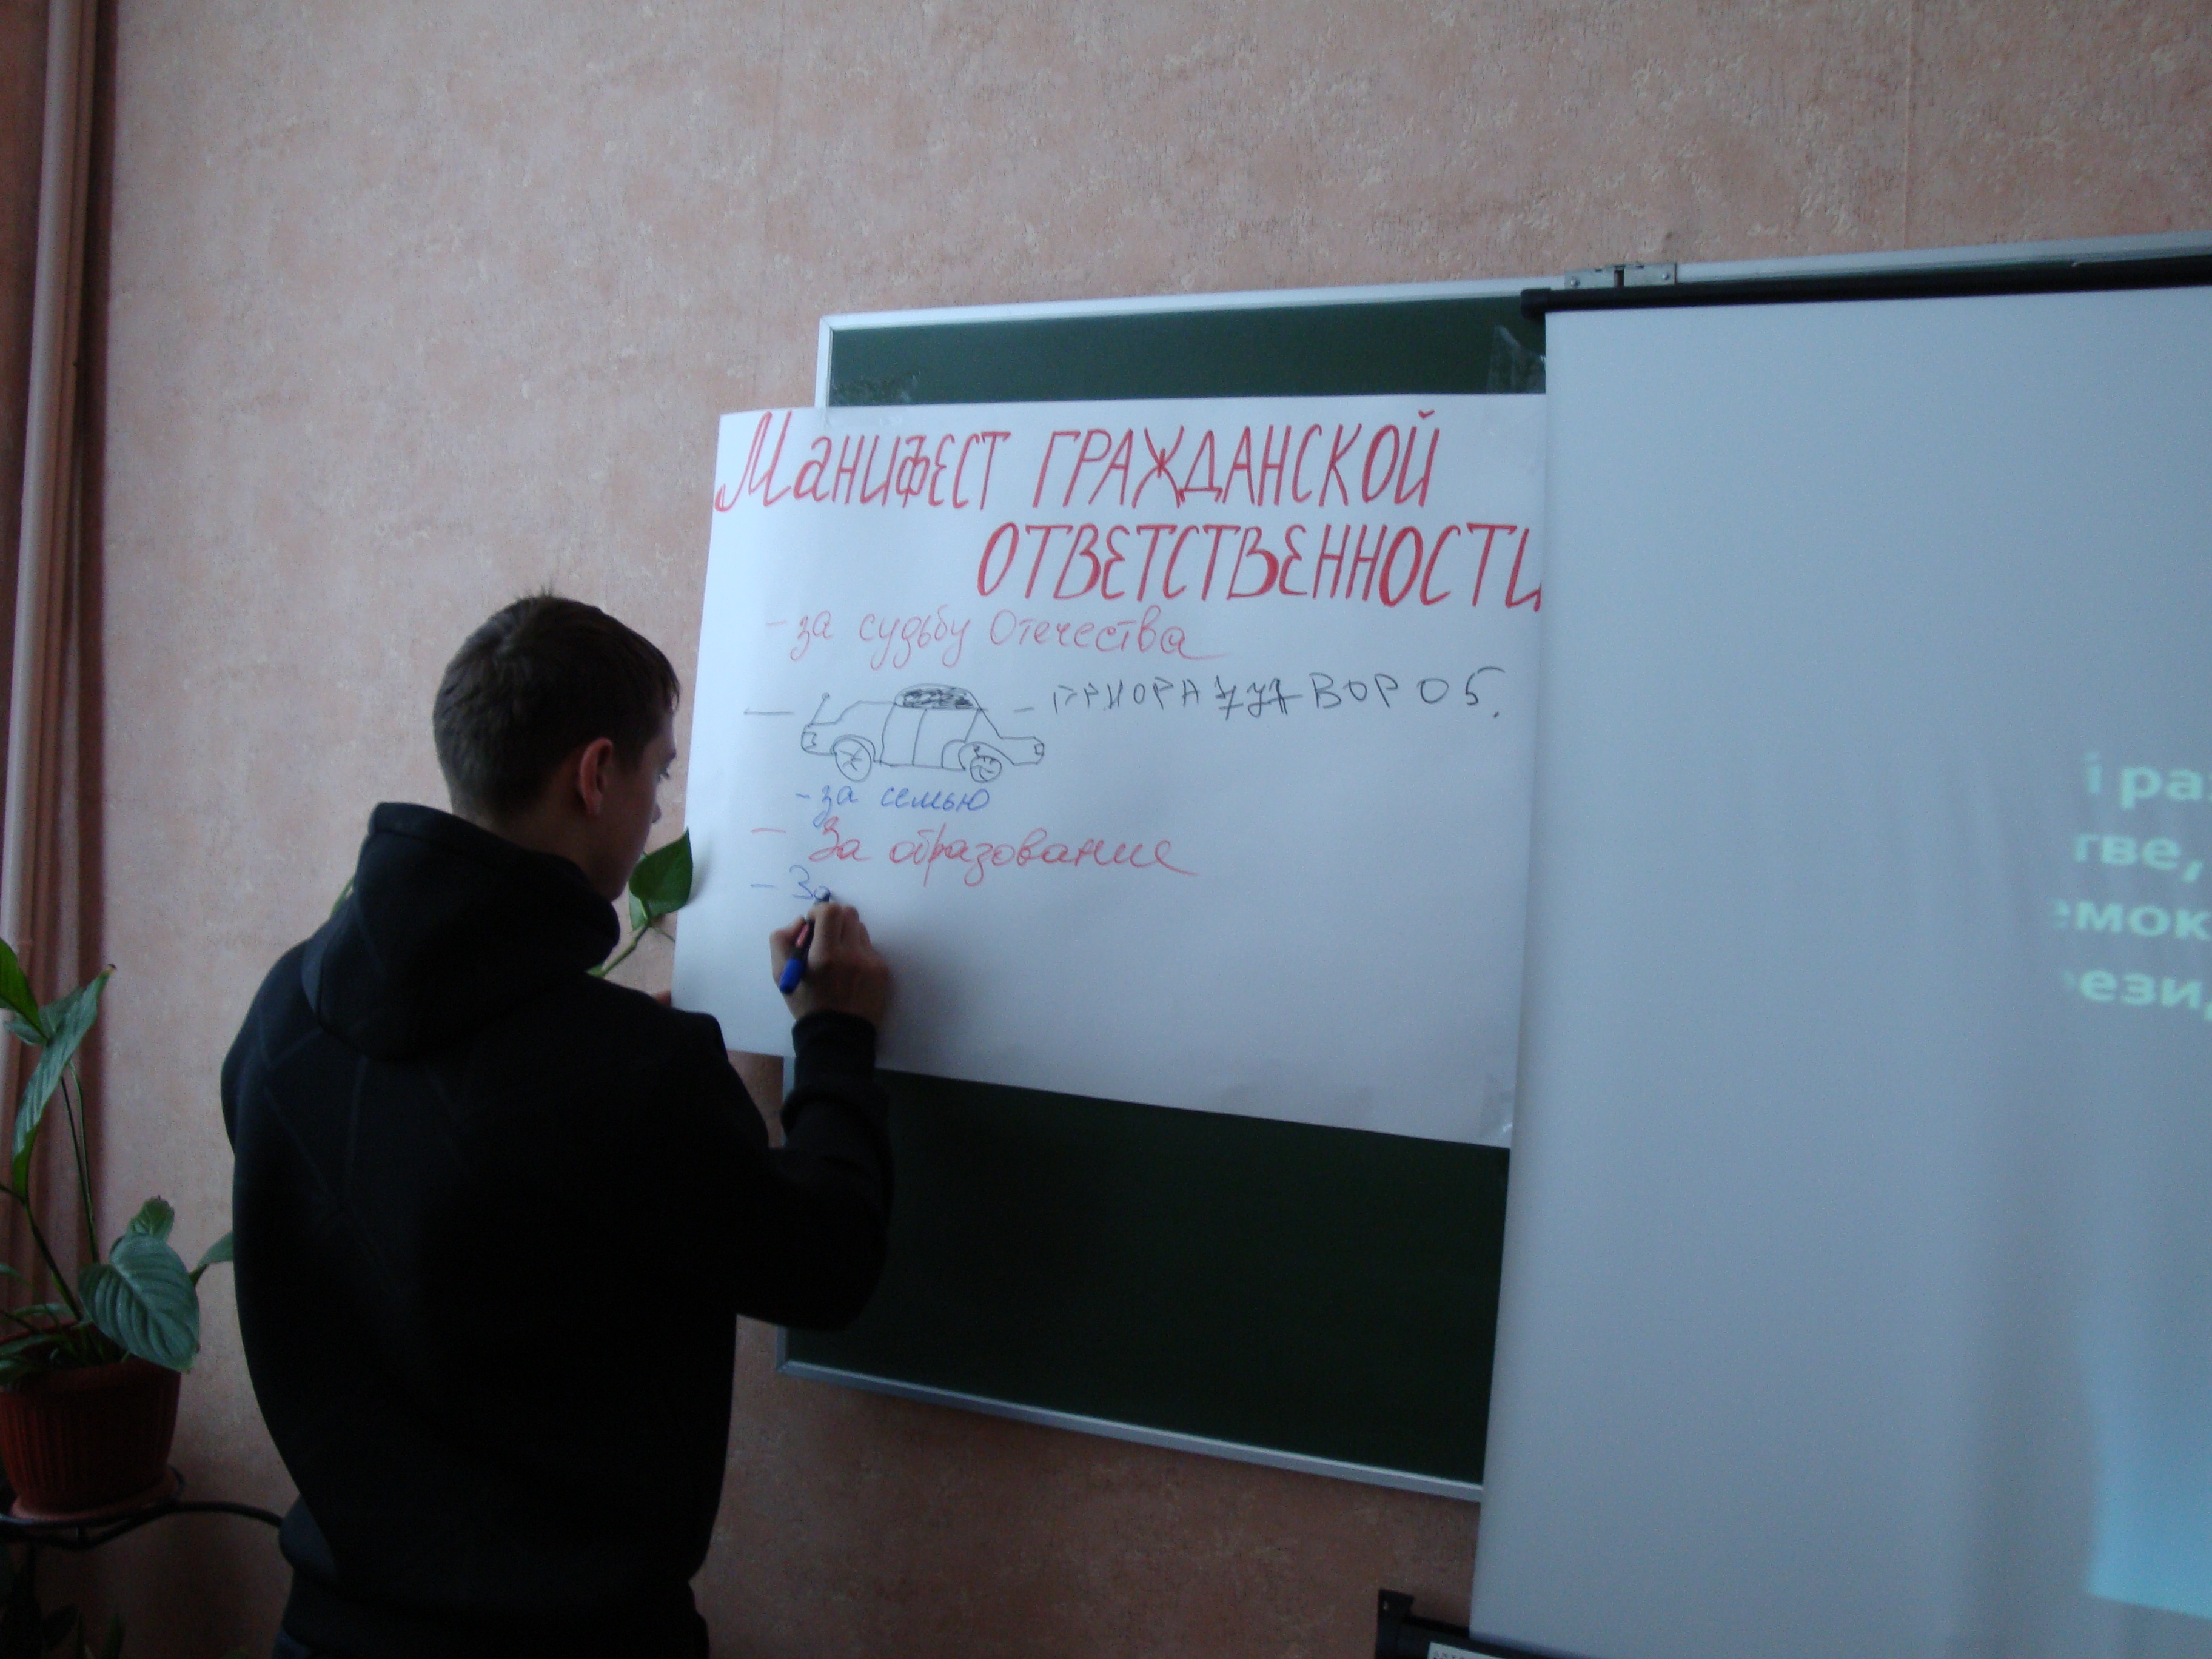 Манифест ГРАЖДАНСКОЙ
ОТВЕТСТВЕННОСТИ
- за судьбу Отечества
- ПРИОРА ВОРОБ.
- за семью
- За образование
- За
ра
тве,
емок
ези